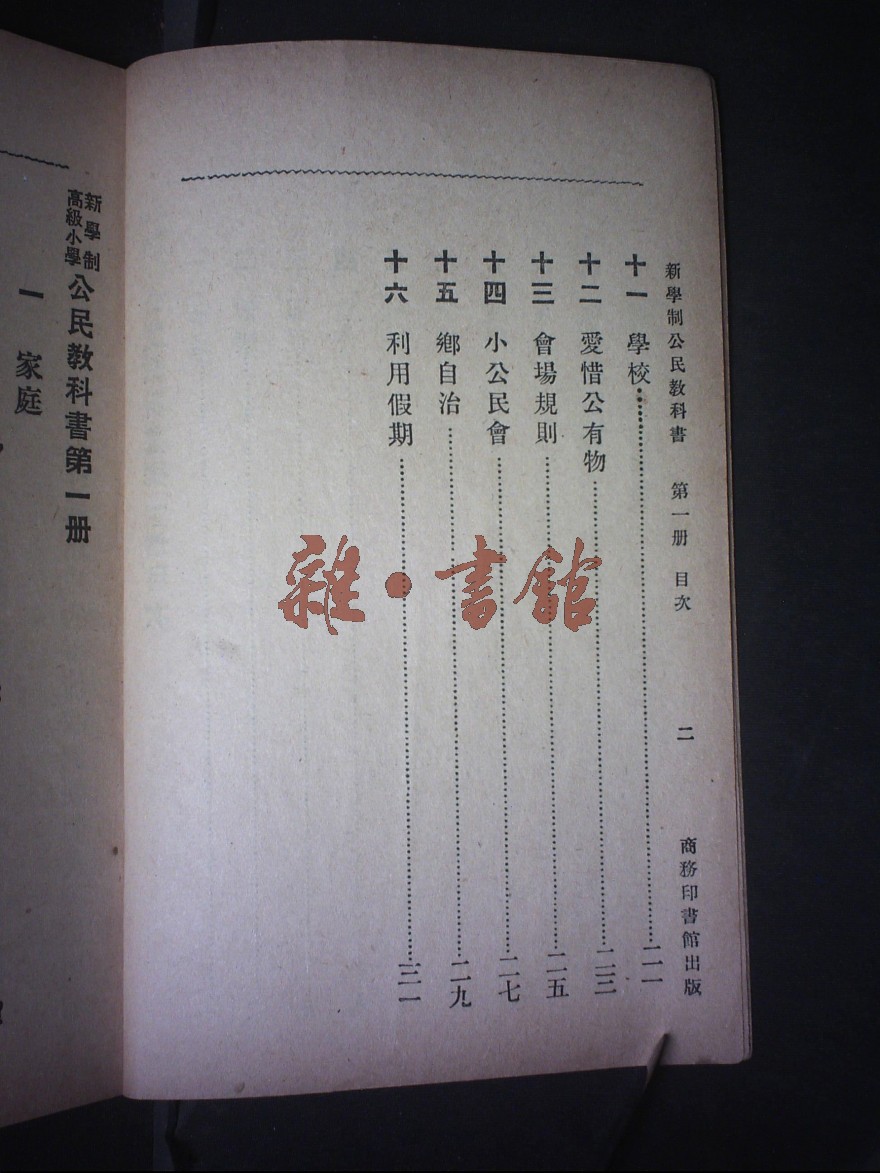 新學制公民教科書 第一册 目次 二 商務印書館出版
十一 學校 二一
十二 愛惜公有物 二三
十三 會場規則 二五
十四 小公民會 二七
十五 鄉自治 二九
十六 利用假期 三一
雜·書館
新學制
高級小學
公民教科書第一册
一 家庭